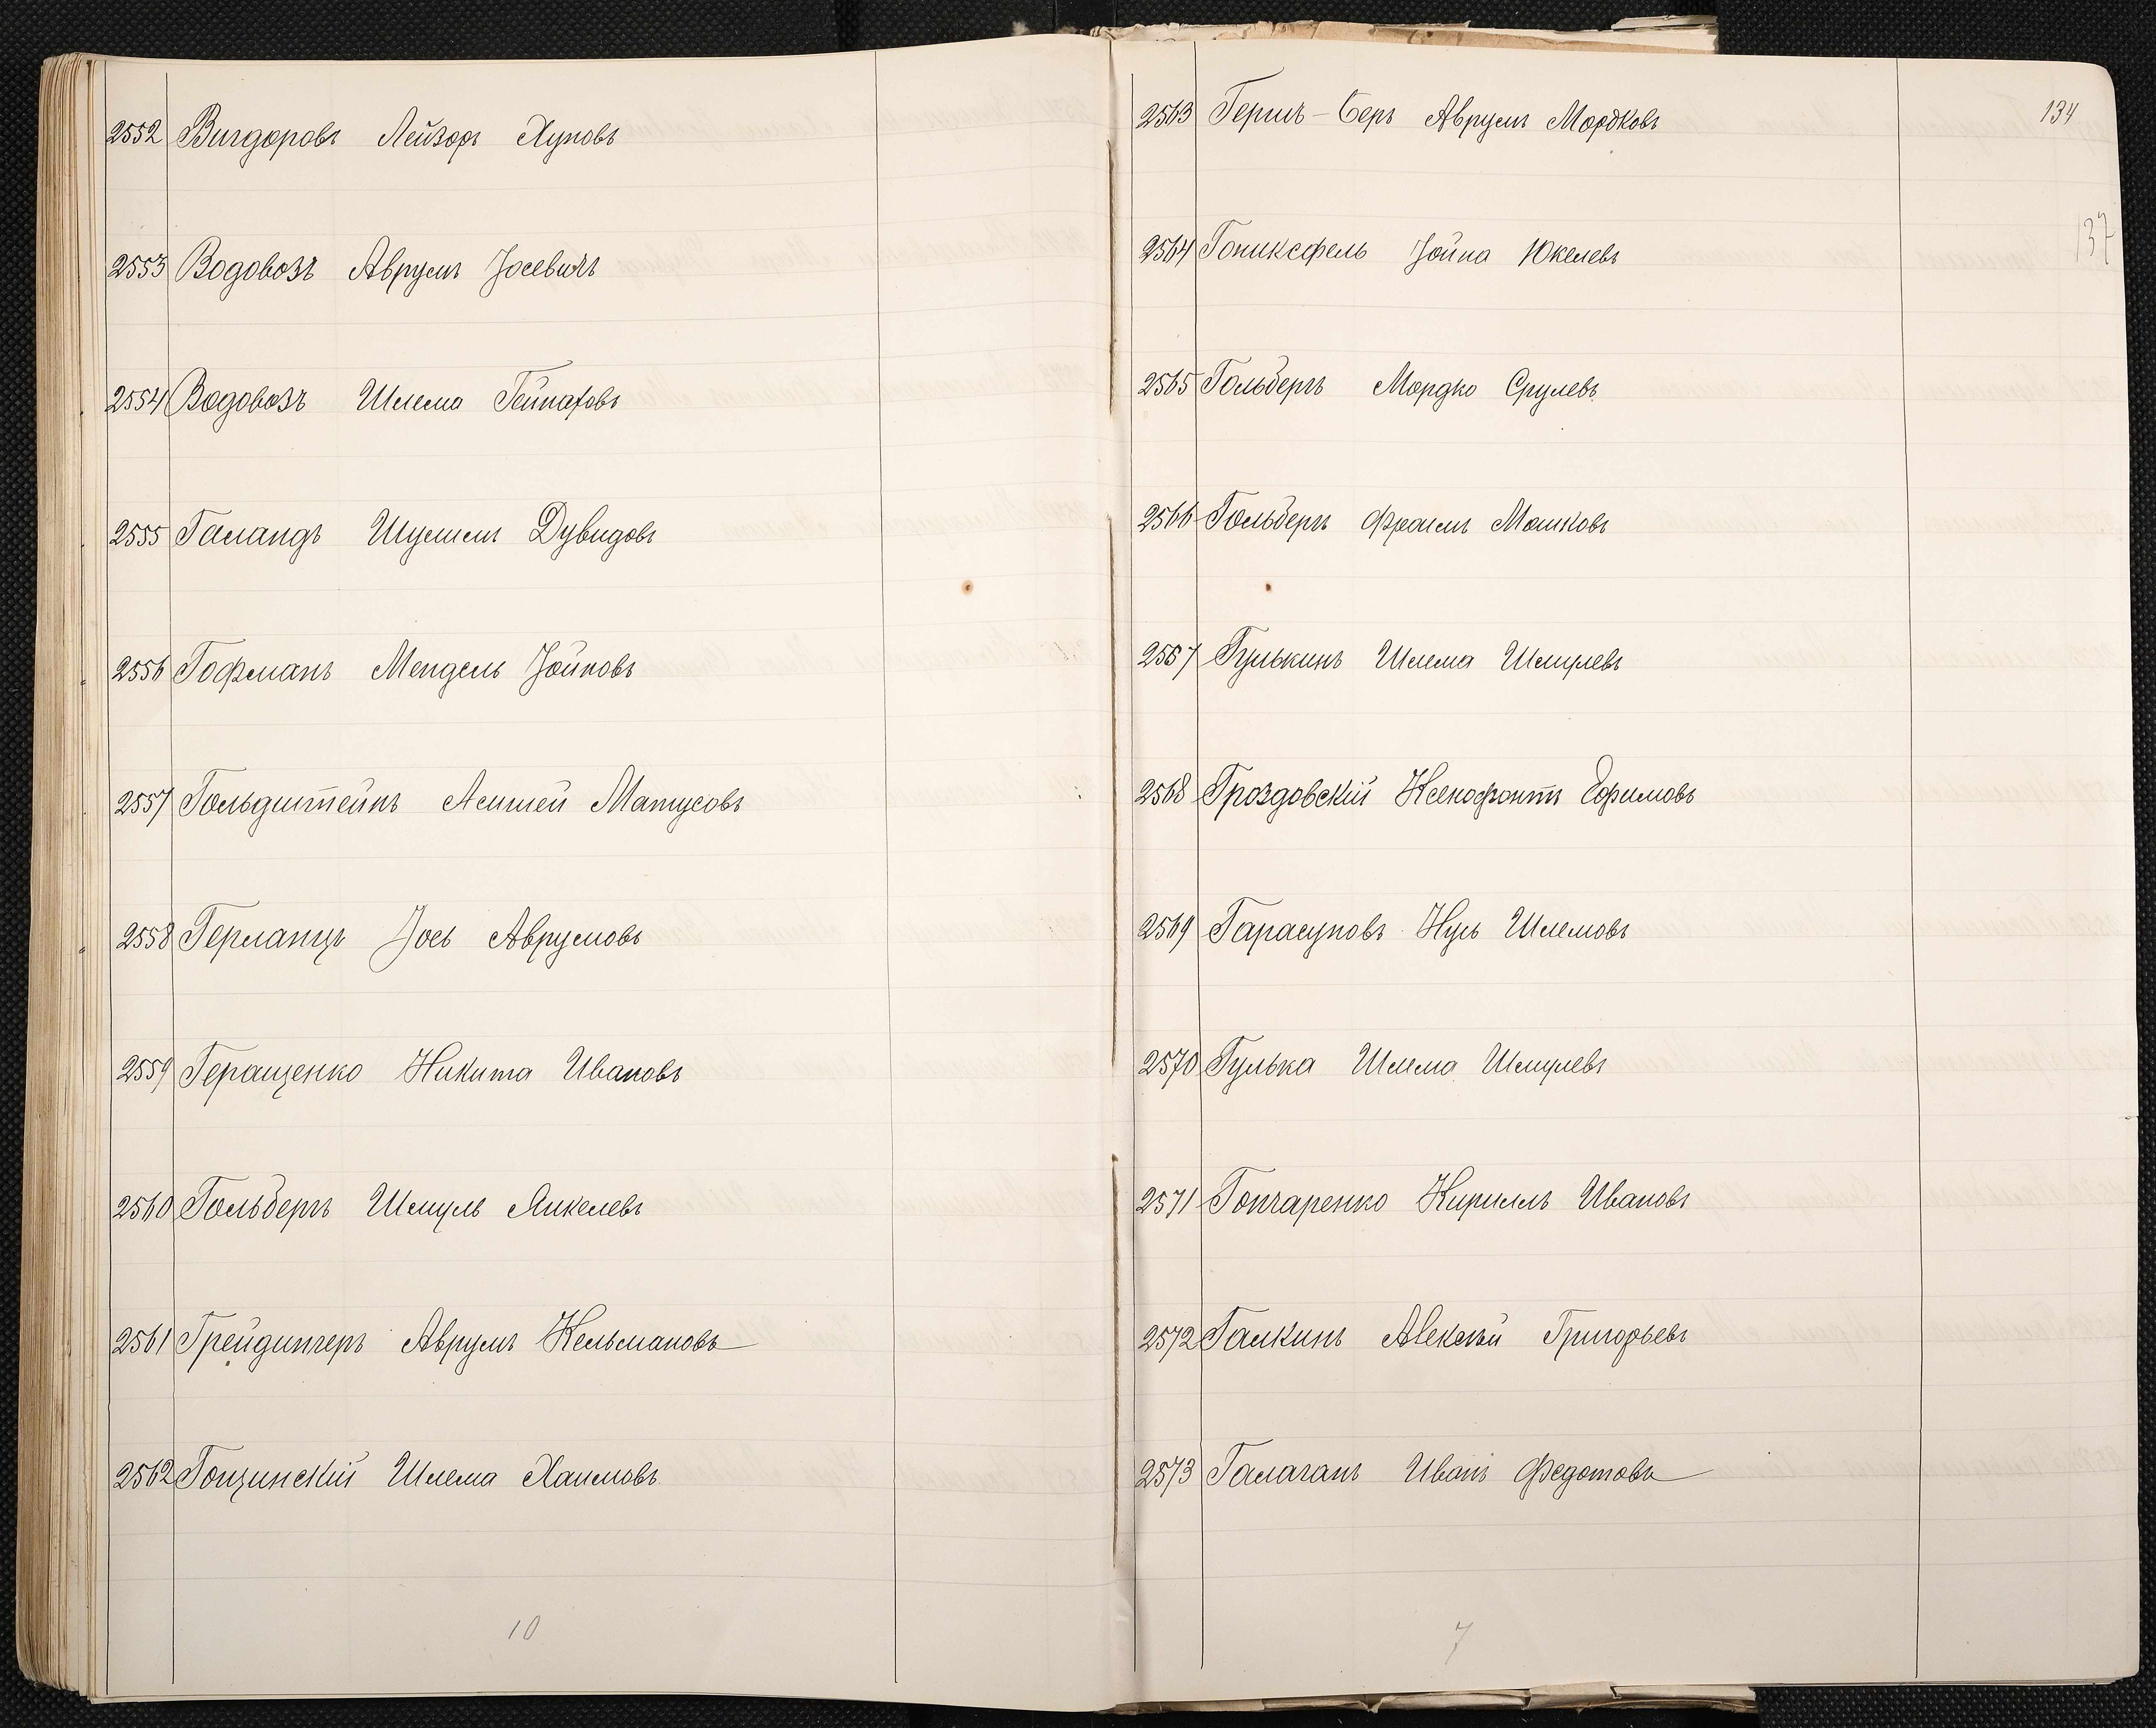 2552 Вигдоровъ Лейзоръ Хуновъ
2553 Водовозъ Аврумъ Іосевичъ
2554 Водовозъ Шлема Гейнаховъ
2555 Галандъ Шулимъ Дувидовъ
2556 Гофманъ Мендель Іойновъ
2557 Гольдштейнъ Матусовъ
2558 Герланцъ Іось Аврумовъ
2559 Геращенко Никита Ивановъ
2560 Гольбергъ Шмуль Янкелевъ
2561 Грейдингеръ Аврумъ Кельмановъ
2562 Гонзинскій Шлема Хаимовъ
10
134
137
2563 Гершъ-Беръ Аврумъ Мордковъ
2564 Гониксфель Іойна Юкелевъ
2565 Гольбергъ Мордко Срулевъ
2566 Гольбергъ Фроимъ Мошковъ
2567 Гулькинъ Шлема Шмулевъ
2568 Гроздовскій Ксенофонтъ Ефимовъ
2569 Гарасуновъ Нусь Шлемовъ
2570 Гулька Шлема Шмулевъ
2571 Гончаренко Кириллъ Ивановъ
2572 Галкинъ Алексѣй Григорьевъ
2573 Галаганъ Иванъ Федотовъ
7